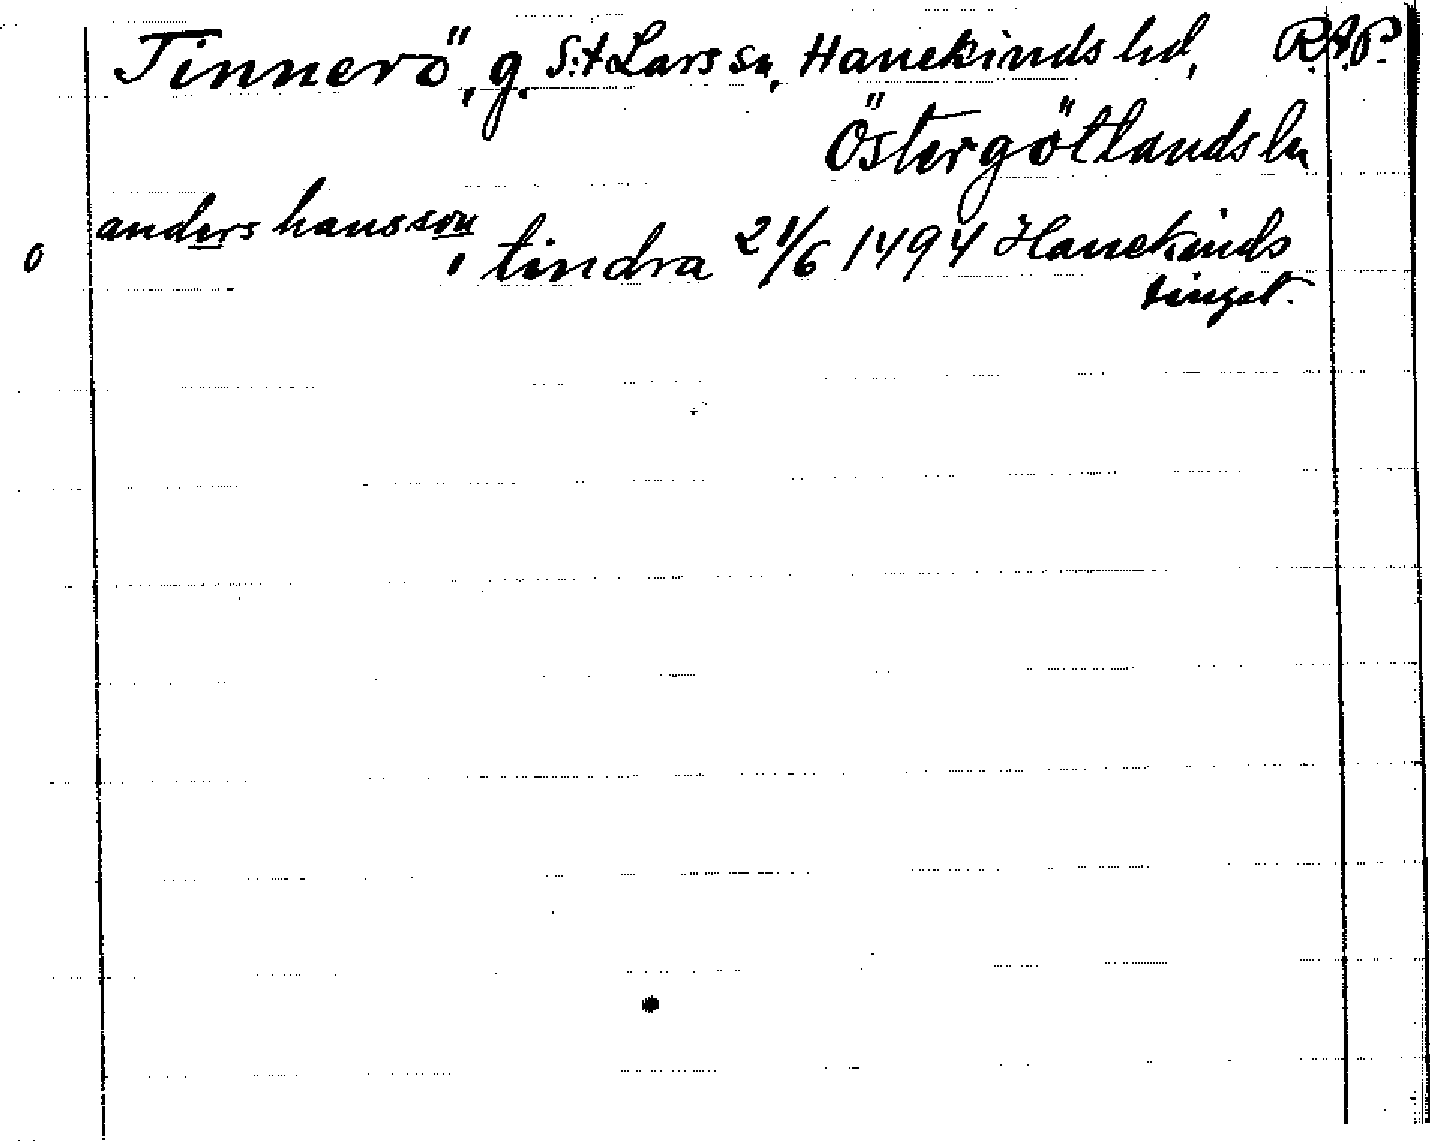 Tinnerö, g. S:t Lars sn, Hanekinds hd, R.A.P.
Östergötlands ln
o anders hansson i tindra 21/6 1494 Hanekinds
tinget.